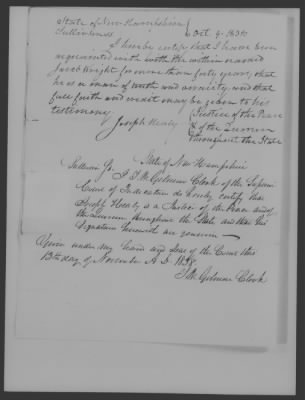 State of New Hampshire
Sullivan ss Oct 9. 1838
I hereby certify that I have been
acquainted with the within named
Jacob Wright for more than forty years, that
he is a man of truth and veracity and that
full faith and credit may be given to his
testimony Justice of the Peace
Joseph Healy & of the Quorum
throughout the State
State of New Hampshire
Sullivan ss.
I Clerk of the Superior
Court of Judicature do hereby certify that
Joseph Healy is a Justice of the Peace and of
the Quorum throughout the State, and that his
Signature is genuine
Given under my hand and Seal of the Court this
13th day of November A.D. 1838
Clerk